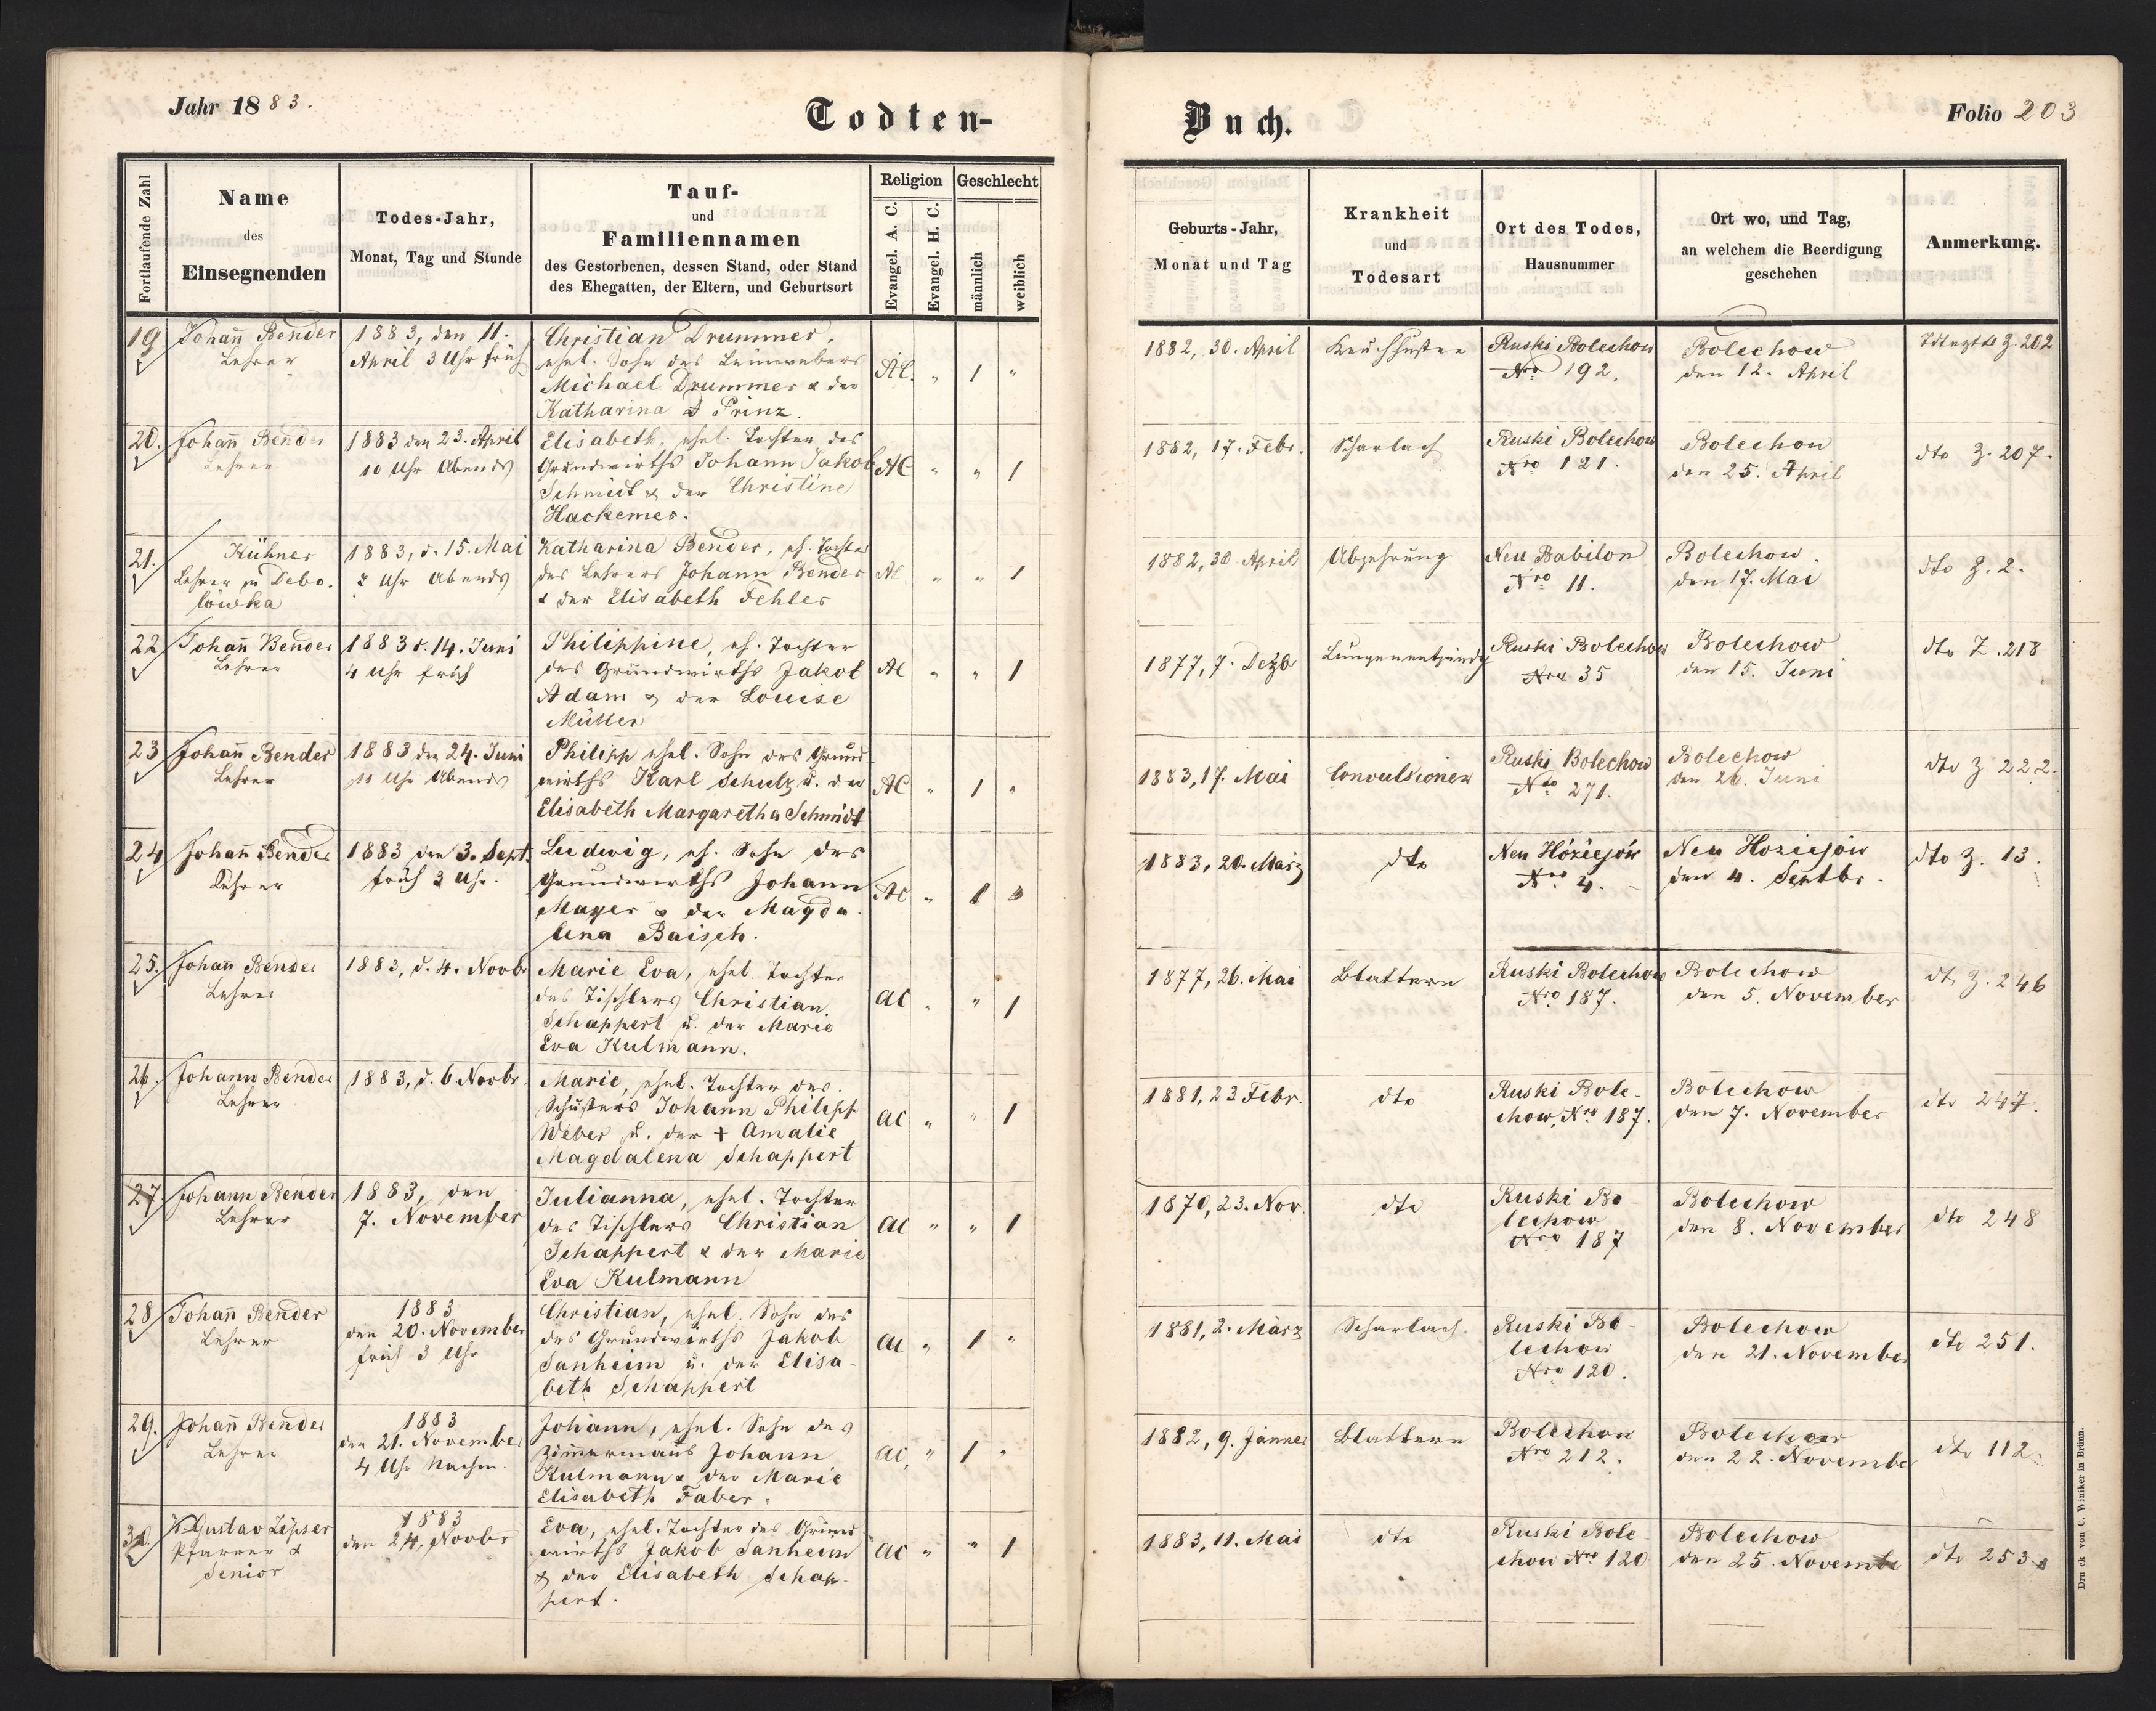 Jahr 1883.
Todten-
Buch.
Folio 203
Fortlaufende Zahl
Name
des
Einsegnenden
Todes-Jahr,
Monat, Tag und Stunde
Tauf-
und
Familiennamen
des Gestorbenen, dessen Stand, oder Stand
des Ehegatten, der Eltern, und Geburtsort
Religion
Evangel. A. C.
Evangel. H. C.
Geschlecht
männlich
weiblich
Geburts-Jahr,
Monat und Tag
Krankheit
und
Todesart
Ort des Todes,
Hausnummer
Ort wo, und Tag,
an welchem die Beerdigung
geschehen
Anmerkung.
19
Johañ Bender
Lehrer
1883, den 11.
April 3 Uhr früh
Christian Drummer,
ehel. Sohn des Leinwebers
Michael Drummer & der
Katharina Prinz.
AC. " 1 "
1882, 30. April
Keuchhusten
Ruski Bolechow
Nro 192.
Bolechow
den 12. April
Z. 202
20.
Johañ Bender
Lehrer
1883 den 23. April
10 Uhr Abends
Elisabeth, ehel. Tochter des
Grundwirths Johann Jakob
Schmidt & der Christine
Hackemer.
AC " " 1
1882, 17. Febr.
Scharlach
Ruski Bolechow
Nro 121.
Bolechow
den 25. April
dto Z. 207.
21.
Kühner
Lehrer zu Debo-
lowka
1883, d. 15. Mai
Uhr Abends
Katharina Bender, eh. Tochter
des Lehrers Johann Bender
& der Elisabeth Fehler
AC " " 1
1882, 30. April
Abzehrung
Neu Babilon
Nro 11.
Bolechow.
den 17. Mai
dto Z. 2.
22
Johañ Bender
Lehrer
1883 d. 14. Juni
4 Uhr früh
Philippine, eh. Tochter
des Grundwirths Jakob
Adam & der Louise
Müller
AC " " 1
1877, 7. Dezbr
Lungenentzündg
Ruski Bolechow
Nro 35
Bolechow
den 15. Juni
dto Z. 218
23
Johañ Bender
Lehrer
1883 den 24. Juni
10 Uhr Abends
Philipp ehel. Sohn des Grund
wirths Karl Schulz u. der
Elisabeth Margaretha Schmidt
AC " 1 "
1883, 17. Mai
Convulsionen
Ruski Bolechow
Nro 271.
Bolechow
den 26. Juni
dto Z. 222.
24
Johañ Bender
Lehrer
1883 den 3. Sept.
früh 3 Uhr.
Ludwig, eh. Sohn des
Grundwirths Johann
Mayer & der Magda
lena Baisch.
AC " 1
1883, 20. März
dto
Neu Hoziejów
Nro 4.
Neu Hoziejów
den 4. Septbr.
dto Z. 13.
25.
Johañ Bender
Lehrer
1883, d. 4. Novbr
Marie Eva, ehel. Tochter
des Tischlers Christian
Schappert u. der Marie
Eva Kulmann.
AC " " 1
1877, 26. Mai
Blattern
Ruski Bolechow
Nro 187.
Bolechow
den 5. November
dt Z. 246
26.
Johann Bender
Lehrer
1883, d. 6 Novbr.
Marie, ehel. Tochter des
Schusters Johann Philipp
Weber u. der + Amalie
Magdalena Schappert
AC " " 1
1881, 23 Febr.
dto
Ruski Bole-
chow, Nro 187.
Bolechow
den 7. November
dto 247.
27
Johann Bender
Lehrer
1883, den
7. November
Julianna, ehel. Tochter
des Tischlers Christian
Schappert & der Marie
Eva Kulmann
AC " " 1
1870, 23. Nov.
dto
Ruski Bo-
lechow
Nro 187
Bolechow
den 8. November
dto 248
28
Johañ Bender
Lehrer
1883
den 20. November
früh 3 Uhr
Christian, ehel. Sohn des
des Grundwirths Jakob
Sanheim u. der Elisa-
beth Schappert
AC " 1 "
1881, 2. März
Scharlach.
Ruski Bo-
lechow
Nro 120.
Bolechow
den 21. November
dto 251.
29.
Johañ Bender
Lehrer
1883
den 21. November
4 Uhr Nachm.
Johann, ehel. Sohn des
Zimmermans Johann
Kulmann & der Marie
Elisabeth Faber.
AC, " 1 "
1882, 9. Jänner
Blattern
Bolechow
Nro 212.
Bolechow
den 22. November
dto 112.
30
Gustav Zipser
Pfarrer &
Senior
1883
den 24. Novbr
Eva, ehel. Tochter des Grund
wirths Jakob Sanheim
& der Elisabeth Schap-
pert.
AC " " 1
1883, 11. Mai
dto
Ruski Bole
chow Nro 120
Bolechow
den 25. November
dto 253
Druck von C. Winiker in Brünn.